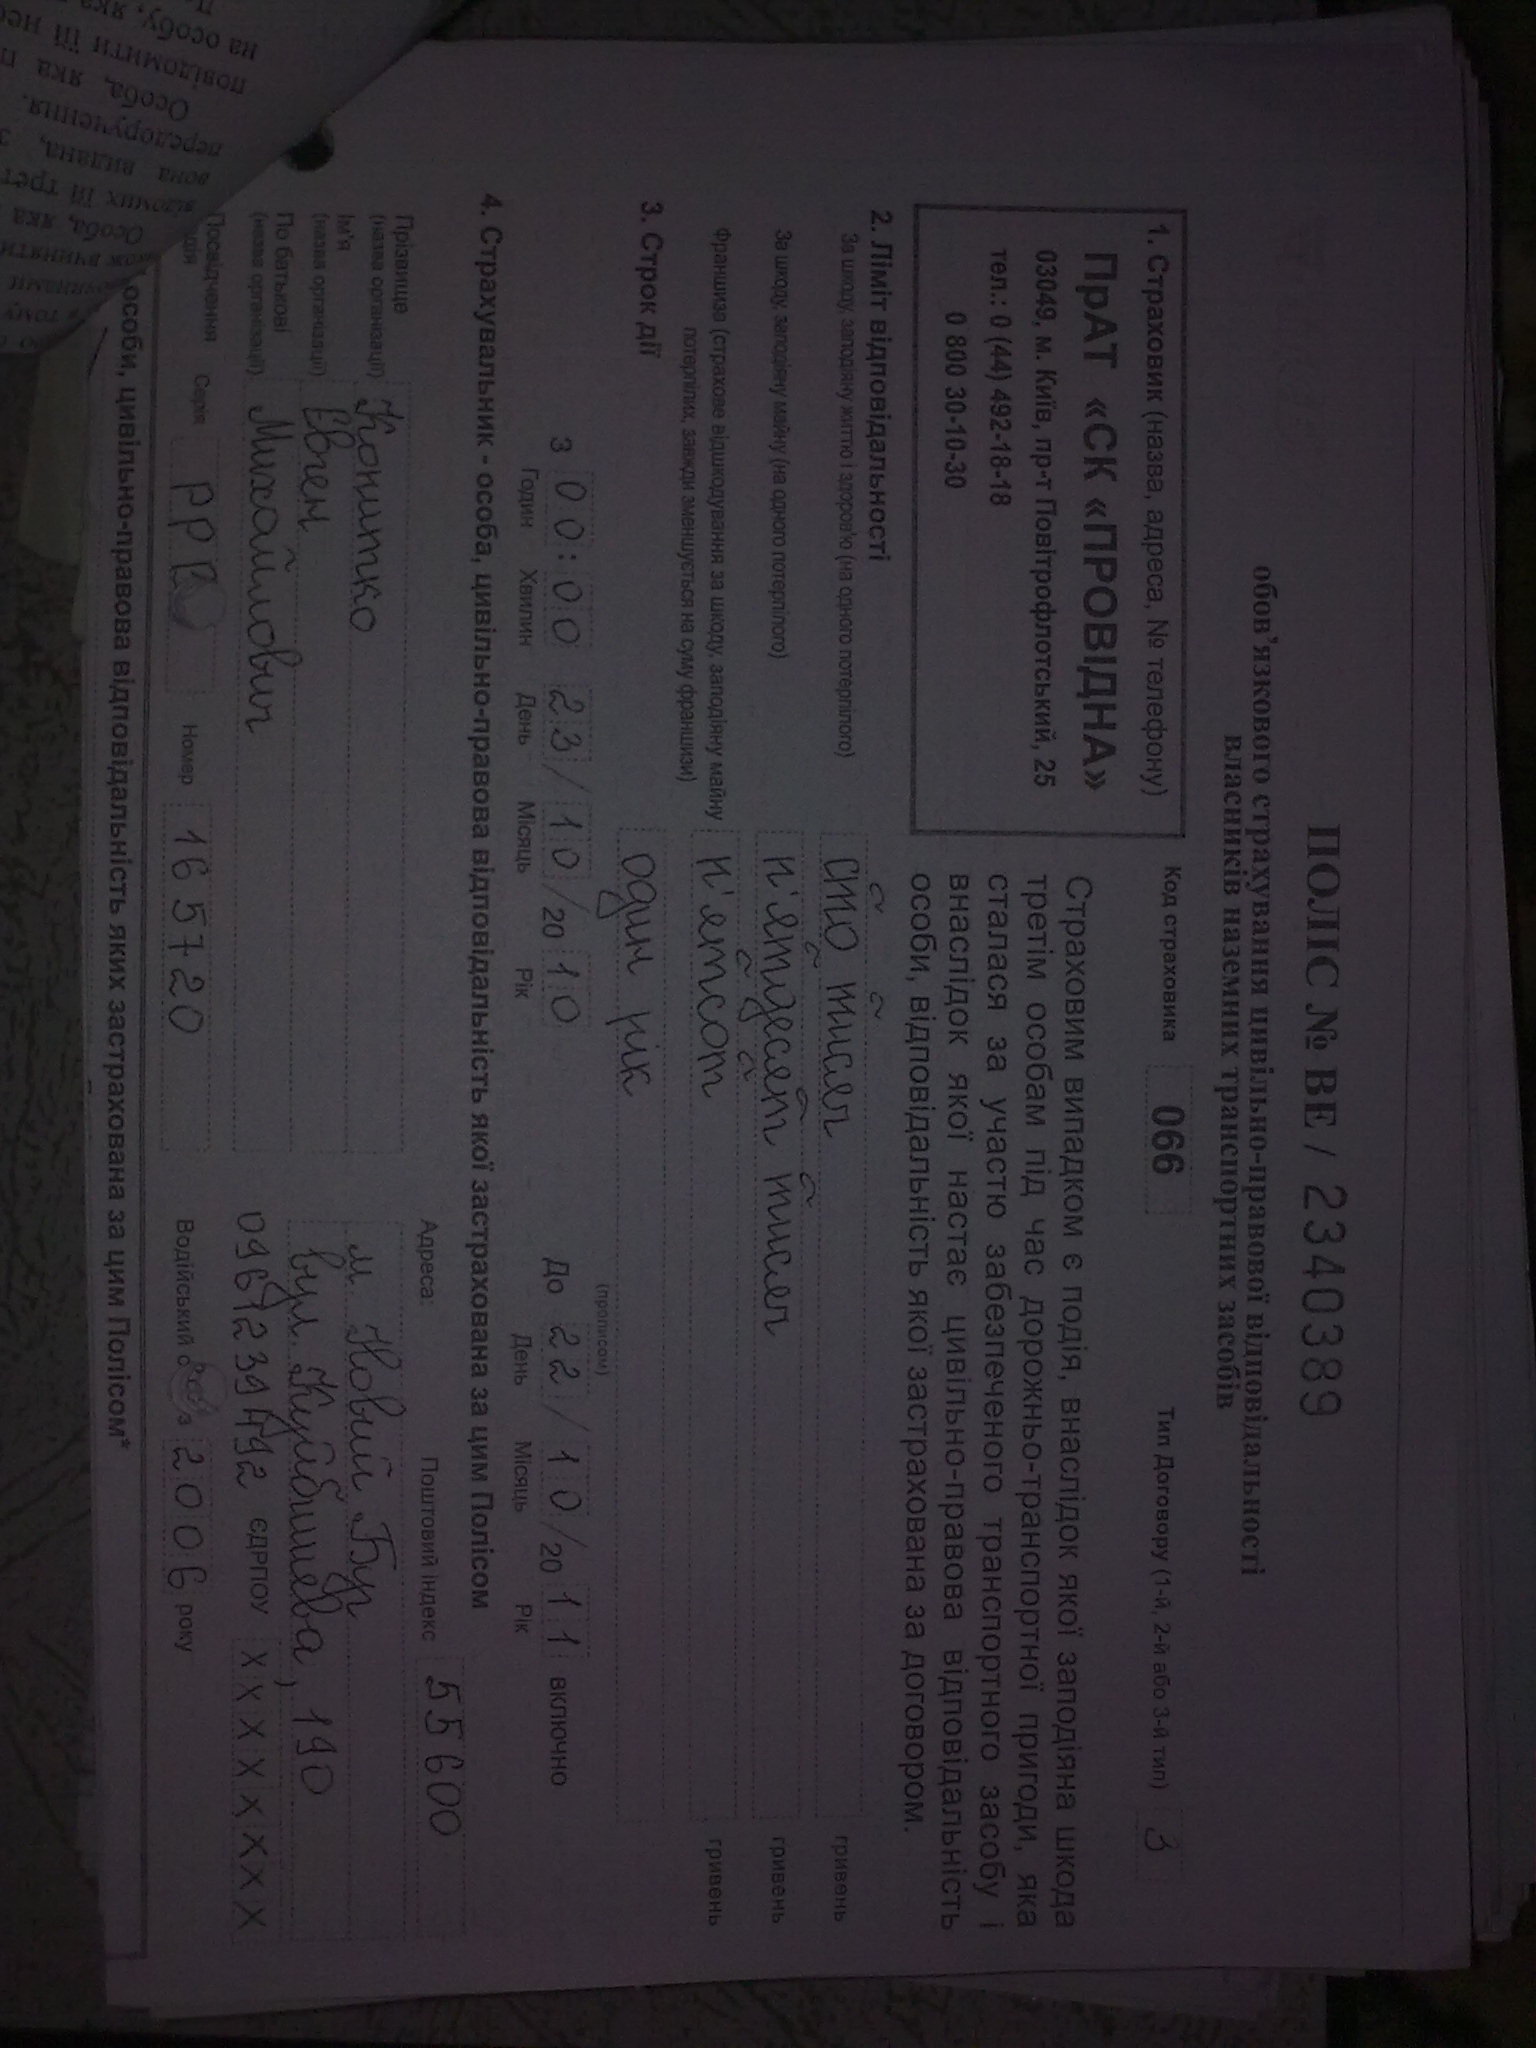 ПОЛІС № ВЕ / 2340389
обов'язкового страхування цивільно-правової відповідальності
власників наземних транспортних засобів
1. Страховик (назва, адреса, № телефону)
ПрАТ «СК «ПРОВІДНА»
03049, м. Київ, пр-т Повітрофлотський, 25
тел.: 0 (44) 492-18-18
0 800 30-10-30
Код страховика 066 Тип Договору (1-й, 2-й або 3-й тип) 3
Страховим випадком є подія, внаслідок якої заподіяна шкода
третім особам під час дорожньо-транспортної пригоди, яка
сталася за участю забезпеченого транспортного засобу і
внаслідок якої настає цивільно-правова відповідальність
особи, відповідальність якої застрахована за договором.
2. Ліміт відповідальності
За шкоду, заподіяну життю і здоров'ю (на одного потерпілого) сто тисяч гривень
За шкоду, заподіяну майну (на одного потерпілого) п'ятдесят тисяч гривень
Франшиза (страхове відшкодування за шкоду, заподіяну майну
потерпілих, завжди зменшується на суму франшизи) п'ятсот гривень
3. Строк дії один рік
(прописом)
З 00:00 23/10/2010 До 22/10/2011 включно
Годин Хвилин День Місяць Рік День Місяць Рік
4. Страхувальник - особа, цивільно-правова відповідальність якої застрахована за цим Полісом
Прізвище
(назва організації)
Ім'я Евген
(назва організації)
По батькові
(назва організації) Михайлович
Адреса: Поштовий індекс 55600
м. Новий Буг
вул. Куйбишева, 190
ЄДРПОУ X X X X X X X X
Посвідчення
Серія РРВ Номер 165720 Водійський з 2006 року
особи, цивільно-правова відповідальність яких застрахована за цим Полісом*
Особа, яка
передоручення.
вона видана, з
Особа, яка
повідомити її
на особу, яка